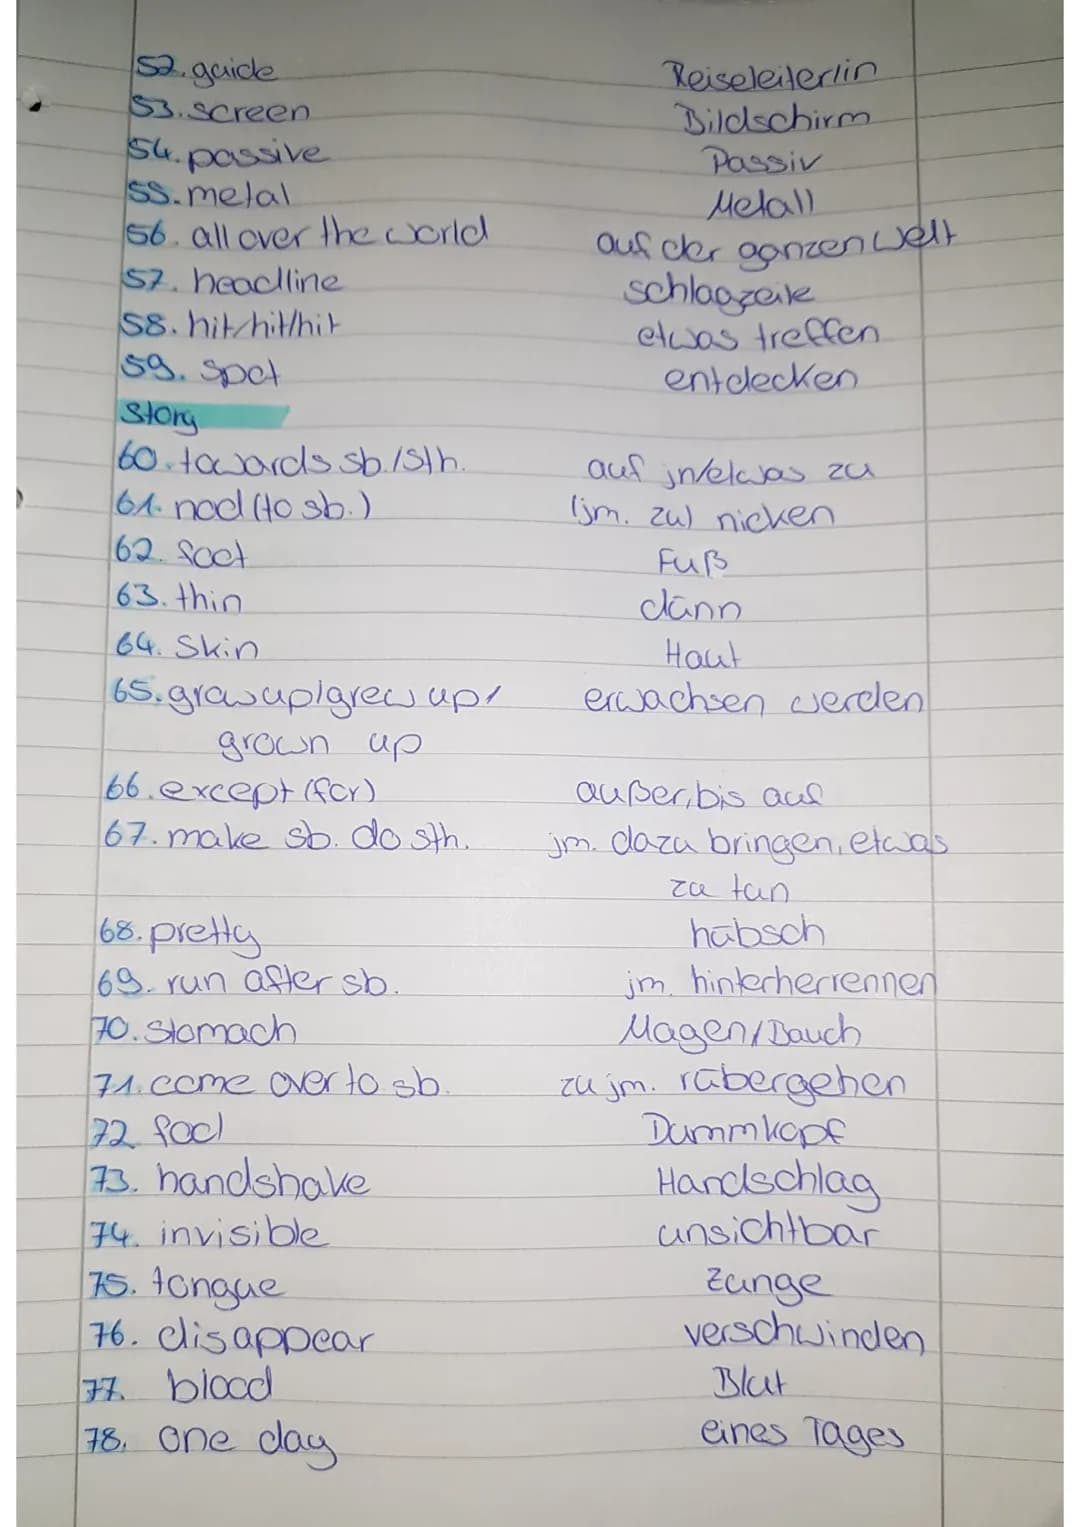 52. guide Reiseleiter/in
53. screen Bildschirm
54. passive Passiv
55. metal Metall
56. all over the world auf der ganzen Welt
57. headline schlagzeile
58. hit/hit/hit etwas treffen
59. spot entdecken
Story
60. towards sb./sth. auf jn/etwas zu
61. nod (to sb.) (jm. zu) nicken
62. foot Fuß
63. thin dünn
64. Skin Haut
65. grow up/grew up/ erwachsen werden
grown up
66. except (for) außer, bis auf
67. make sb. do sth. jm. dazu bringen, etwas
zu tun
68. pretty hübsch
69. run after sb. jm. hinterherrennen
70. stomach Magen/Bauch
71. come over to sb. zu jm. rübergehen
72 fool Dummkopf
73. handshake Handschlag
74. invisible unsichtbar
75. tongue Zunge
76. disappear verschwinden
77. blood Blut
78. one day eines Tages